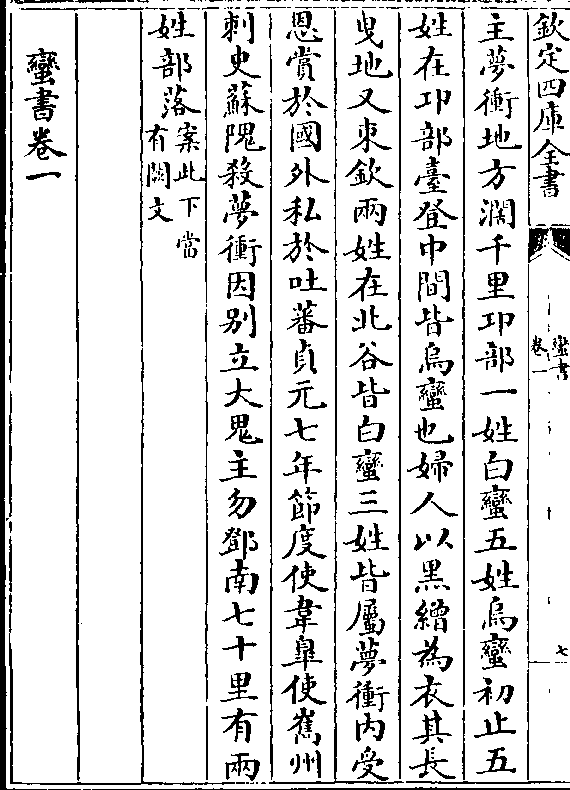 欽定四庫全書
蠻書
卷一
七
主夢衝地方濶千里卭部一姓白蠻五姓烏蠻初止五
姓在卭部臺登中間皆烏蠻也婦人以黑繒為衣其長
曳地又東欽兩姓在北谷皆白蠻三姓皆屬夢衝内受
恩賞於國外私於吐蕃貞元七年節度使韋臯使嶲州
刺史蘇隗殺夢衝因别立大鬼主勿鄧南七十里有兩
姓部落案此下當
有闕文
蠻書卷一